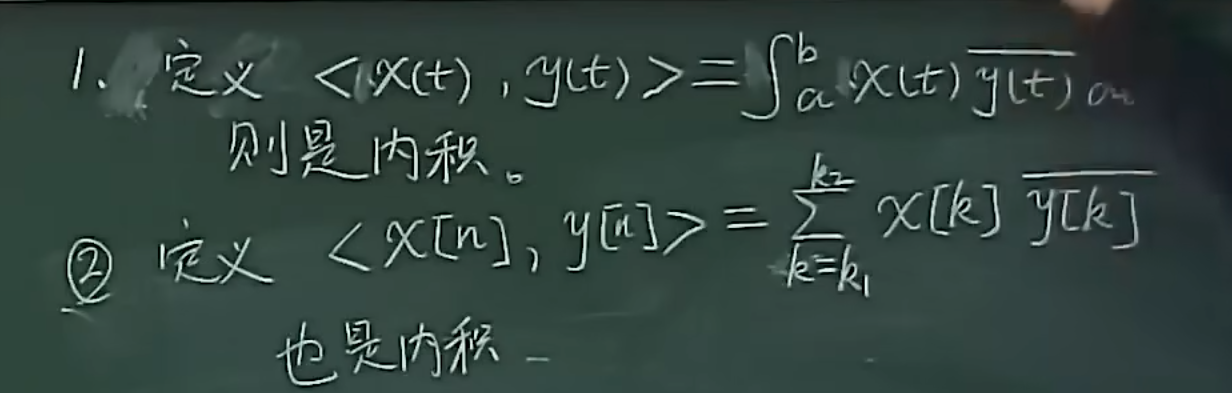 1. 定义 <x(t), y(t)> = ∫_a^b x(t) \overline{y(t)}
则是内积。
② 定义 <x[n], y[n]> = \sum_{k=k_1}^{k_2} x[k] \overline{y[k]}
也是内积